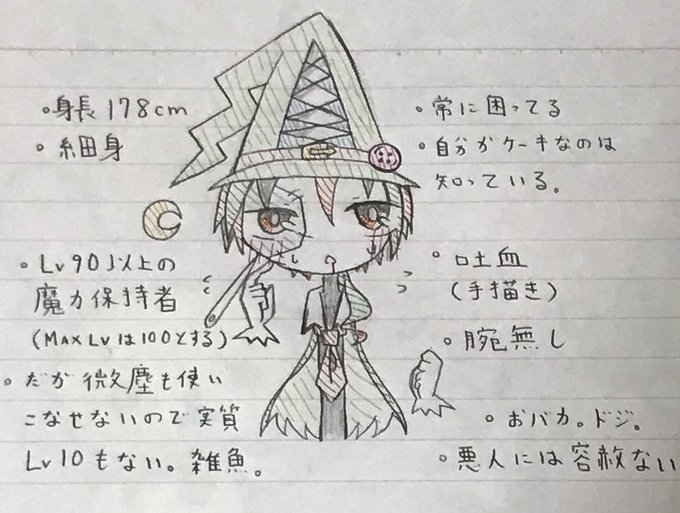 •身長178cm
•細身
•Lv90以上の
魔力保持者
(MAX Lvは100とする)
•だが微塵も使い
こなせないので実質
Lv10もない。雑魚。
•常に困ってる
•自分がケーキなのは
知っている。
•吐血
(手描き)
•腕無し
•おバカ。ドジ。
•悪人には容赦ない